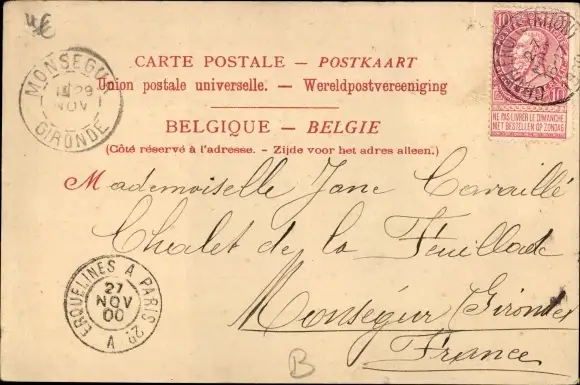 CARTE POSTALE — POSTKAART
Union postale universelle. — Wereldpostvereeniging
BELGIQUE — BELGIE
(Côté réservé à l'adresse. - Zijde voor het adres alleen.)
Mademoiselle Jane Cavaillé
Chalet de la Feuillade
Monségur (Gironde)
France
MONSEGUR
29
NOV
GIRONDE
ERQUELINES A PARIS 2º
27
NOV
00
A
10
NE PAS LIVRER LE DIMANCHE
NIET BESTELLEN OP ZONDAG
B